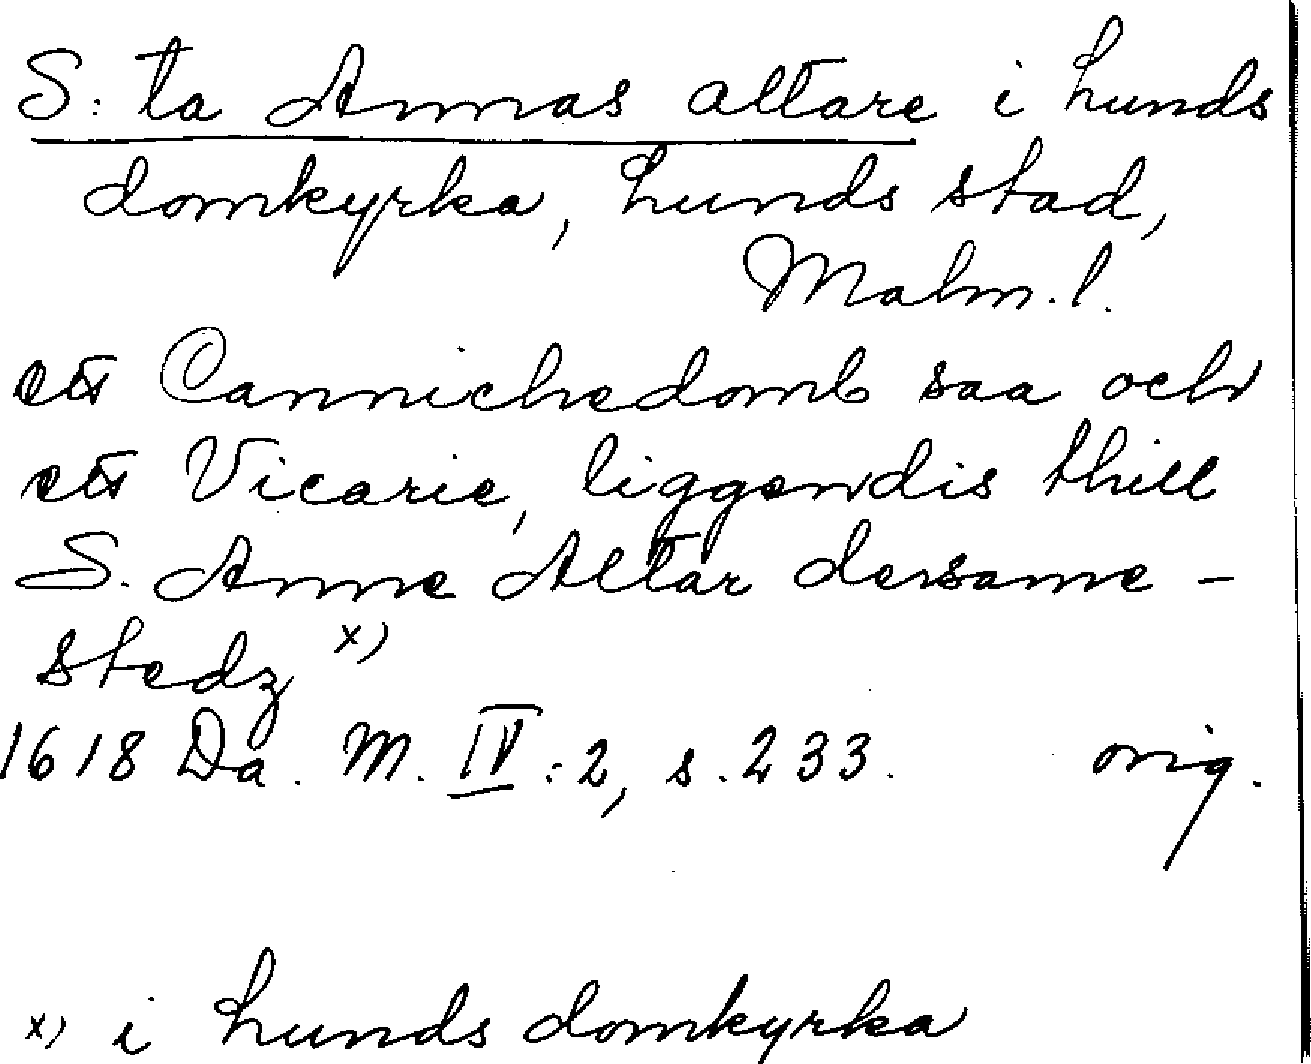 S:ta Annas altare i Lunds
domkyrka, Lunds stad,
Malm.l.
ett Cannichedomb saa och
ett Vicarie, liggendis thill
S. Anne Altar dersamme-
stedz x)
1618 Da. M. IV:2, s. 233. orig.
x) i Lunds domkyrka